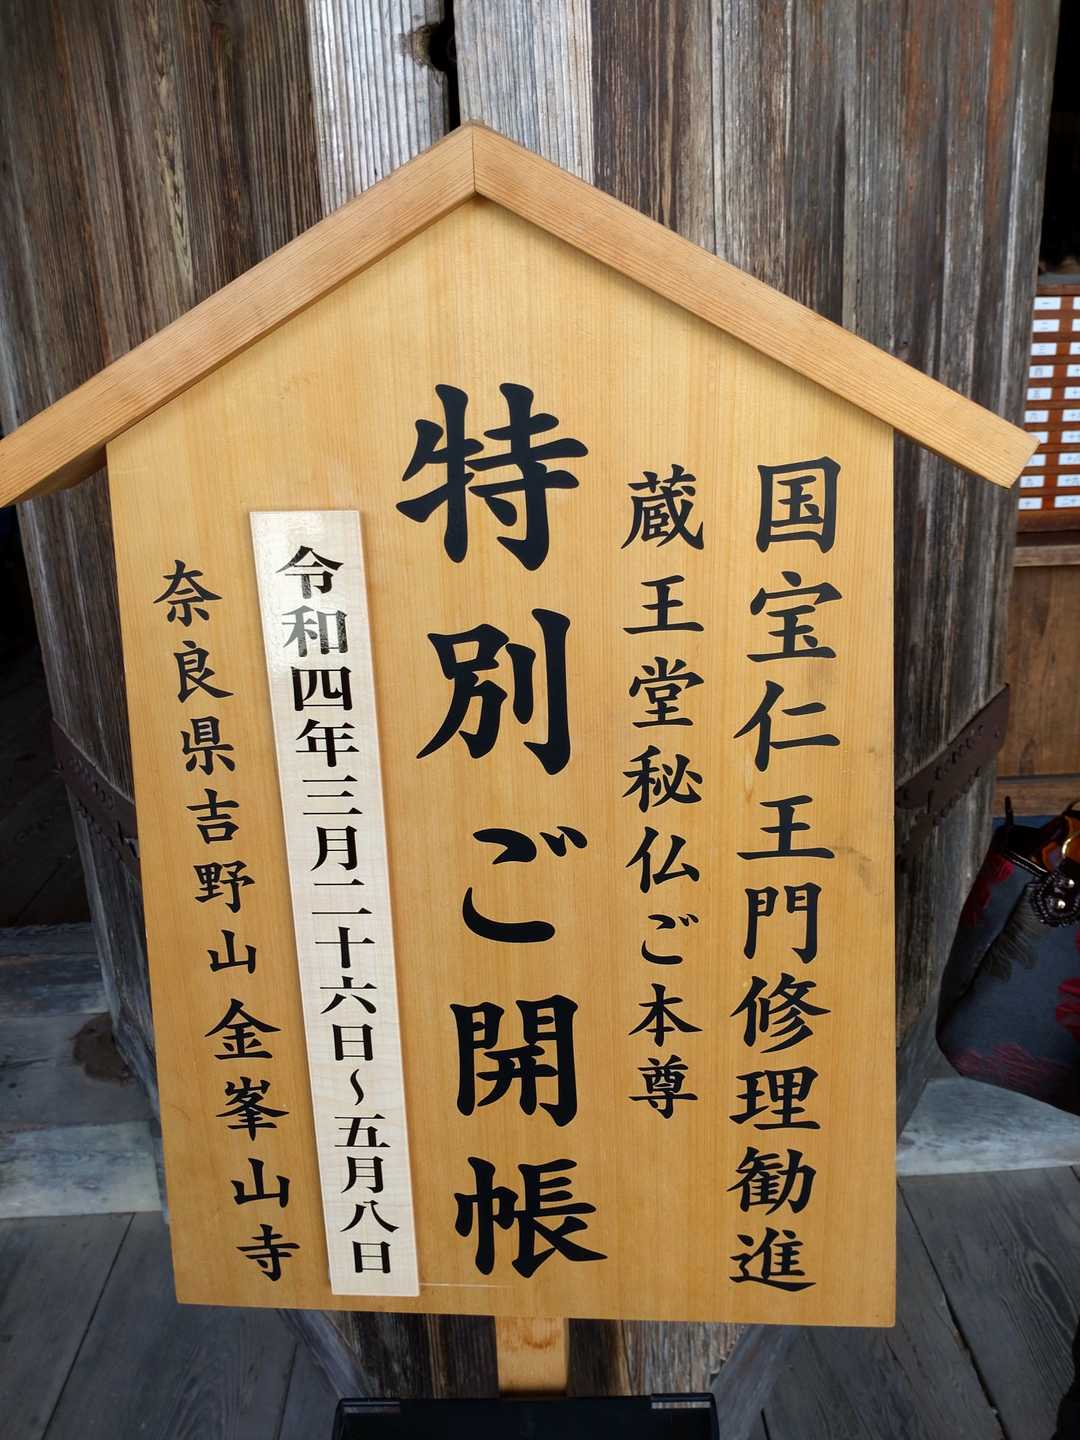 国宝仁王門修理勧進
蔵王堂秘仏ご本尊
特別ご開帳
令和四年三月二十六日〜五月八日
奈良県吉野山金峯山寺